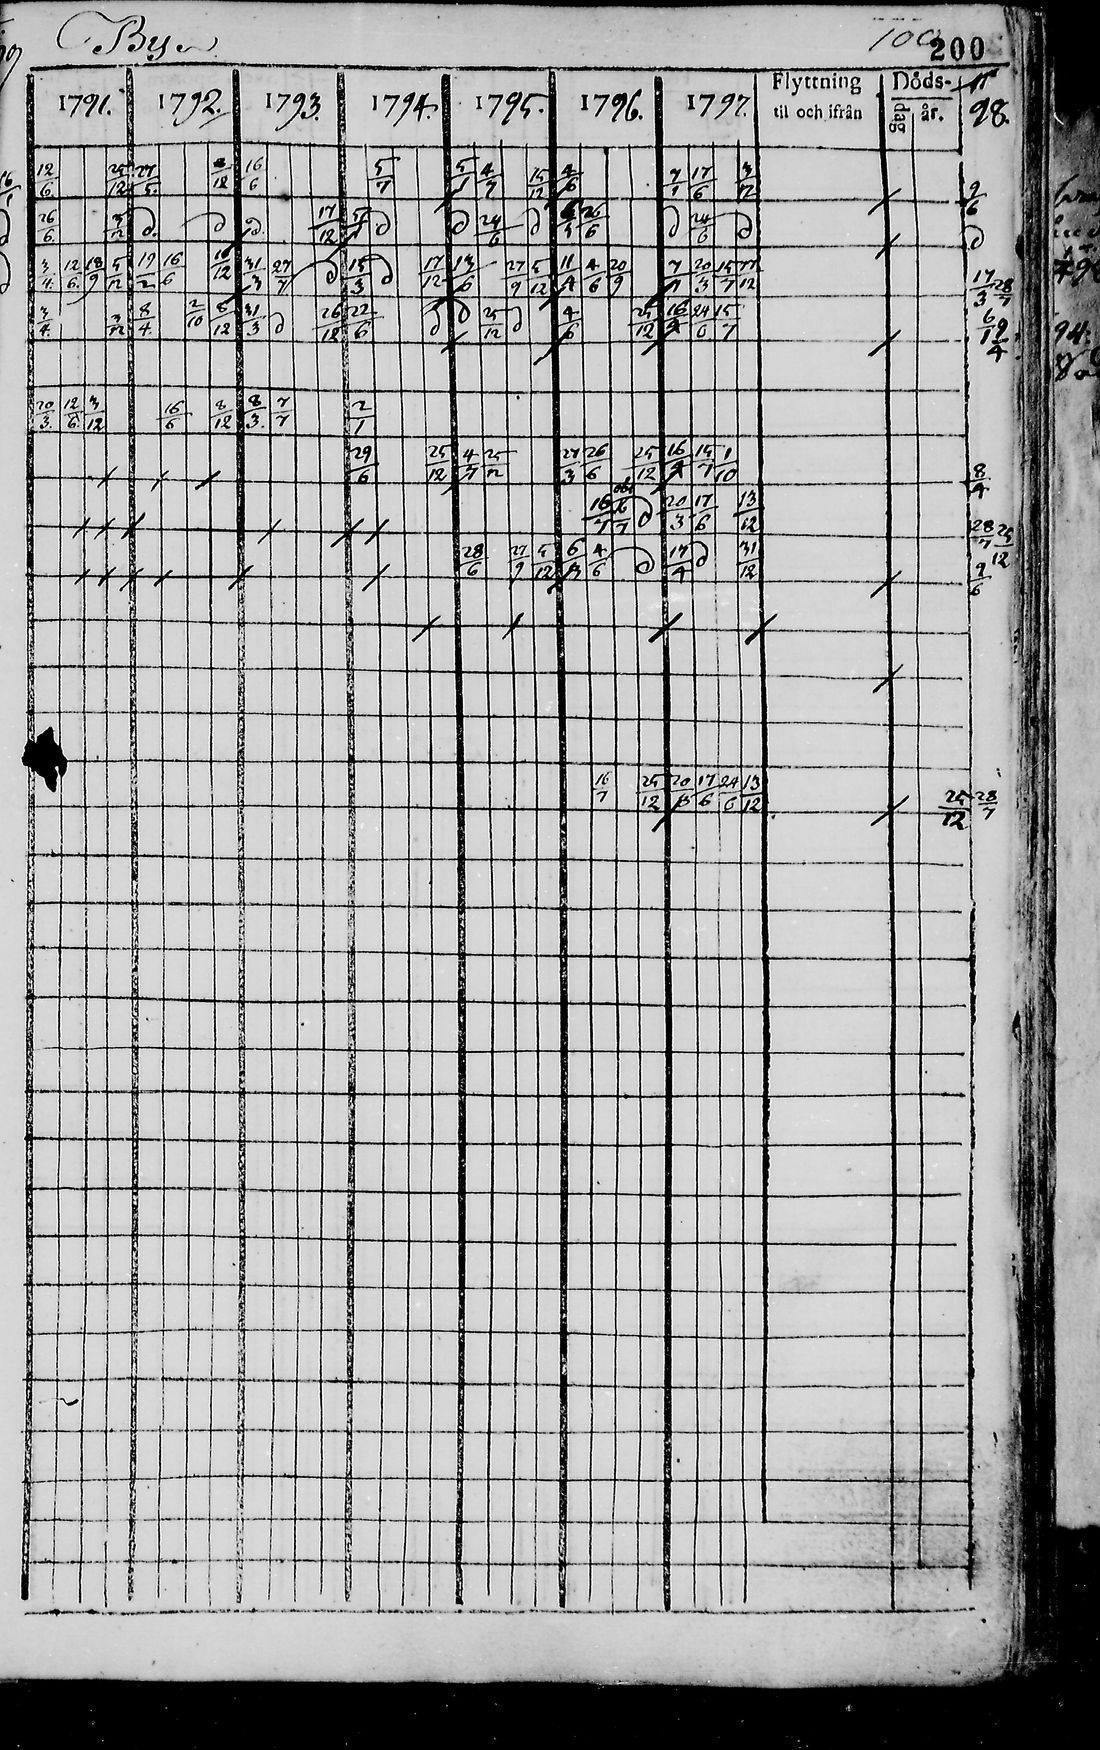 By
100 200
1791. 1792. 1793. 1794. 1795. 1796. 1797. Flyttning til och ifrån Döds- dag år. 98.
12/6 25/12 27/5. 8/12 16/6 5/7 5/1 4/7 15/12 4/6 7/1 17/6 3/12 2/6
26/6. 3/12 d. d d. 17/12 5/1 d d 24/6 d 26/6 d 24/6 d d
3/4. 12/6. 18/9 5/12 19/2 16/6 10/12 31/3 27/7 d 15/3 d 17/12 13/6 27/9 5/12 11/4 4/6 20/9 7/1 20/3 15/7 27/12 17/3 28/7
3/4. 3/12 8/4. 2/10 8/12 31/3 d 26/12 22/6 d d 25/12 d 4/6 25/12 16/4 24/6 15/7 6/1 9/4
20/3. 12/6. 3/12 16/6 8/12 8/3. 7/7 2/1
29/6 25/12 4/7 25/12 27/3 26/6 25/12 16/4 15/7 1/10 8/4
16/7 16/7 d 20/3 17/6 13/12 28/7 25/12
28/6 27/9 5/12 6/3 4/6 d 17/4 d 31/12 9/6
16/7 25/12 20/3 17/6 24/6 13/12 25/12 28/7